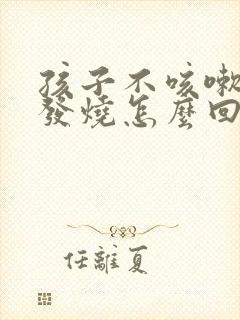 孩子不咳嗽
發燒怎麼回
任離夏